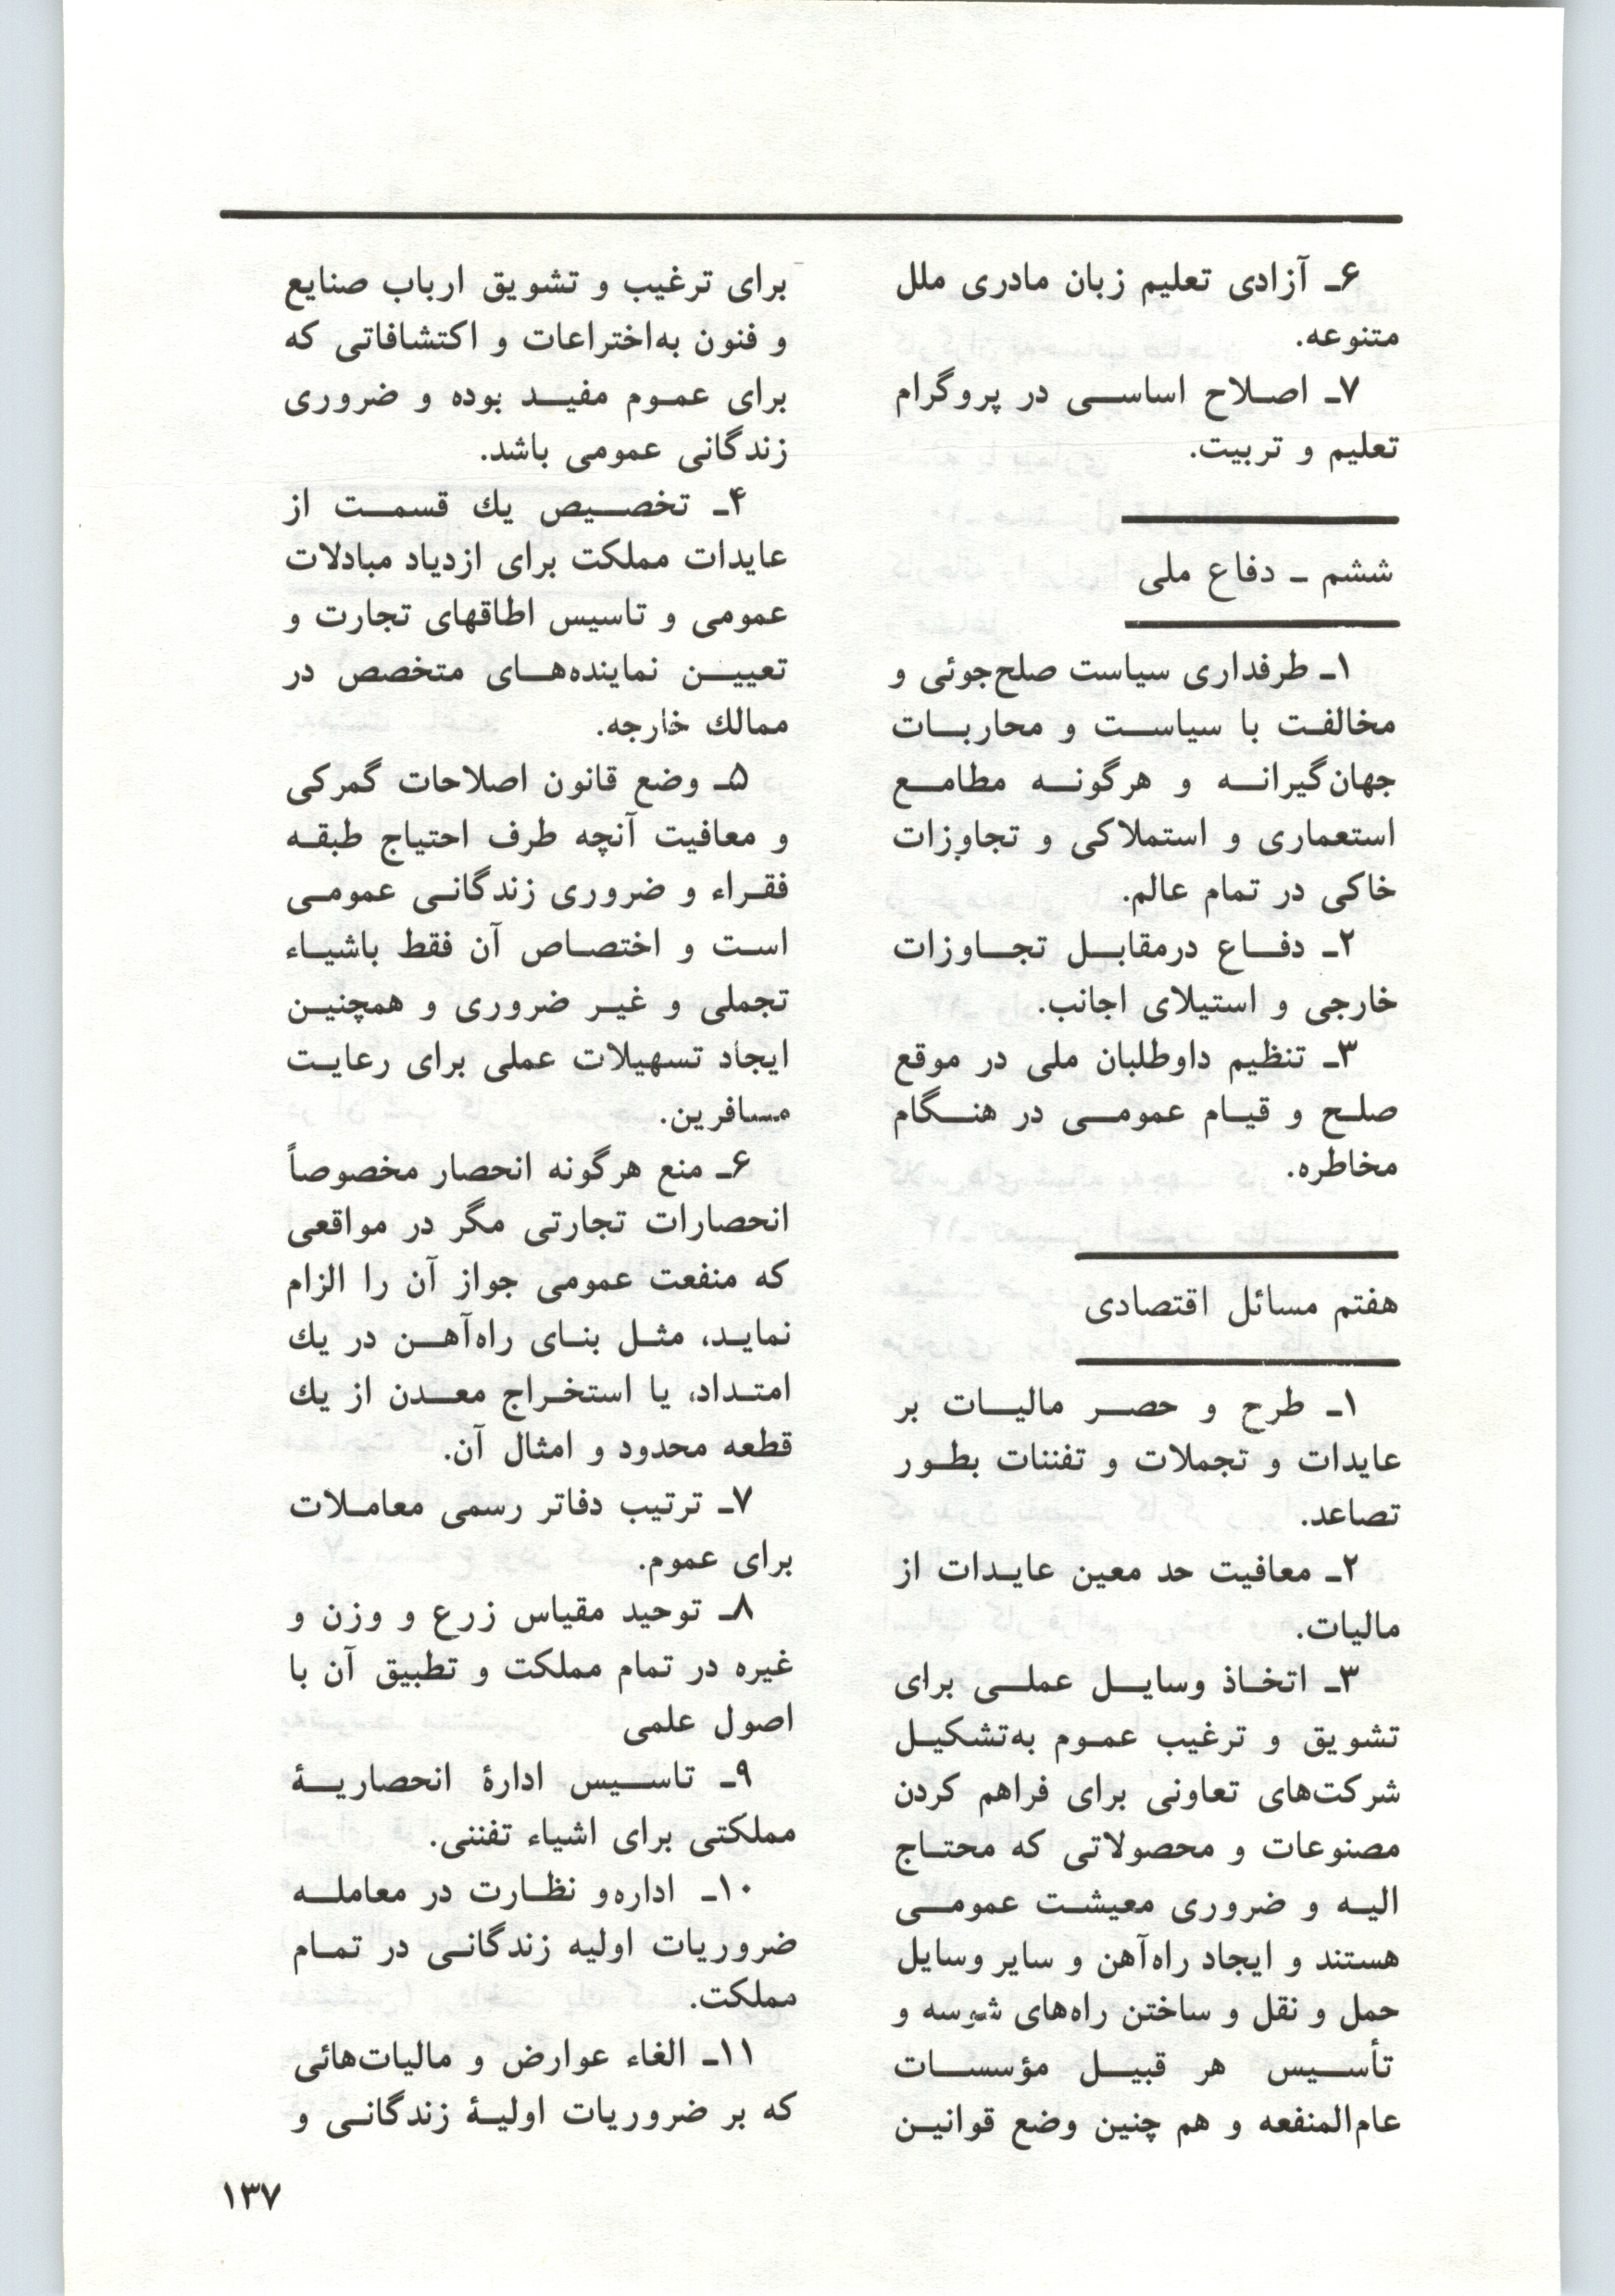 ۶ـ آزادی تعلیم زبان مادری ملل
متنوعه.
۷ـ اصلاح اساسی در پروگرام
تعلیم و تربیت.
ششم ـ دفاع ملی
۱ـ طرفداری سیاست صلح‌جوئی و
مخالفت با سیاست و محاربات
جهان‌گیرانه و هرگونه مطامع
استعماری و استملاکی و تجاوزات
خاکی در تمام عالم.
۲ـ دفاع درمقابل تجاوزات
خارجی و استیلای اجانب.
۳ـ تنظیم داوطلبان ملی در موقع
صلح و قیام عمومی در هنگام
مخاطره.
هفتم مسائل اقتصادی
۱ـ طرح و حصر مالیات بر
عایدات و تجملات و تفننات بطور
تصاعد.
۲ـ معافیت حد معین عایدات از
مالیات.
۳ـ اتخاذ وسایل عملی برای
تشویق و ترغیب عموم به‌تشکیل
شرکت‌های تعاونی برای فراهم کردن
مصنوعات و محصولاتی که محتاج
الیه و ضروری معیشت عمومی
هستند و ایجاد راه‌آهن و سایر وسایل
حمل و نقل و ساختن راه‌های شوسه و
تأسیس هر قبیل مؤسسات
عام‌المنفعه و هم چنین وضع قوانین
برای ترغیب و تشویق ارباب صنایع
و فنون به‌اختراعات و اکتشافاتی که
برای عموم مفید بوده و ضروری
زندگانی عمومی باشد.
۴ـ تخصیص يك قسمت از
عایدات مملکت برای ازدیاد مبادلات
عمومی و تاسیس اطاقهای تجارت و
تعیین نماینده‌های متخصص در
ممالك خارجه.
۵ـ وضع قانون اصلاحات گمرکی
و معافیت آنچه طرف احتیاج طبقه
فقراء و ضروری زندگانی عمومی
است و اختصاص آن فقط باشیاء
تجملی و غیر ضروری و همچنین
ایجاد تسهیلات عملی برای رعایت
مسافرین.
۶ـ منع هرگونه انحصار مخصوصاً
انحصارات تجارتی مگر در مواقعی
که منفعت عمومی جواز آن را الزام
نماید، مثل بنای راه‌آهن در يك
امتداد، یا استخراج معدن از يك
قطعه محدود و امثال آن.
۷ـ ترتیب دفاتر رسمی معاملات
برای عموم.
۸ـ توحید مقیاس زرع و وزن و
غیره در تمام مملکت و تطبیق آن با
اصول علمی
۹ـ تاسیس ادارهٔ انحصاریهٔ
مملکتی برای اشیاء تفننی.
۱۰ـ اداره‌و نظارت در معامله
ضروریات اولیه زندگانی در تمام
مملکت.
۱۱ـ الغاء عوارض و مالیات‌هائی
که بر ضروریات اولیهٔ زندگانی و
۱۳۷